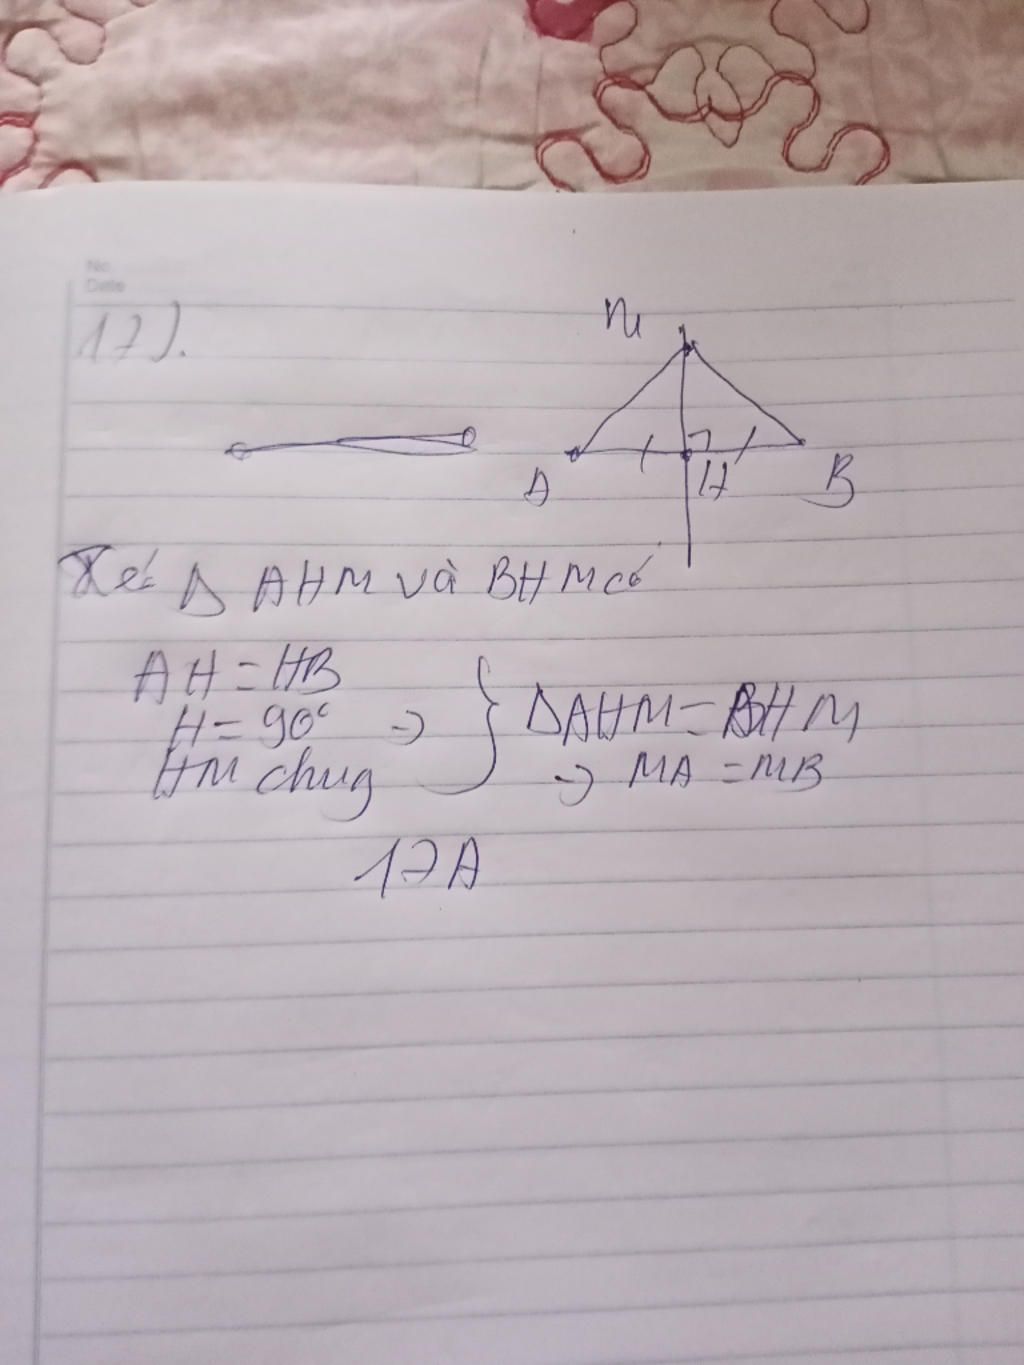 No.
Date
17).
M
A H B
Xét Δ AHM và BHM có
AH = HB
H = 90° => } ΔAHM = BHM
HM chug => MA = MB
17A